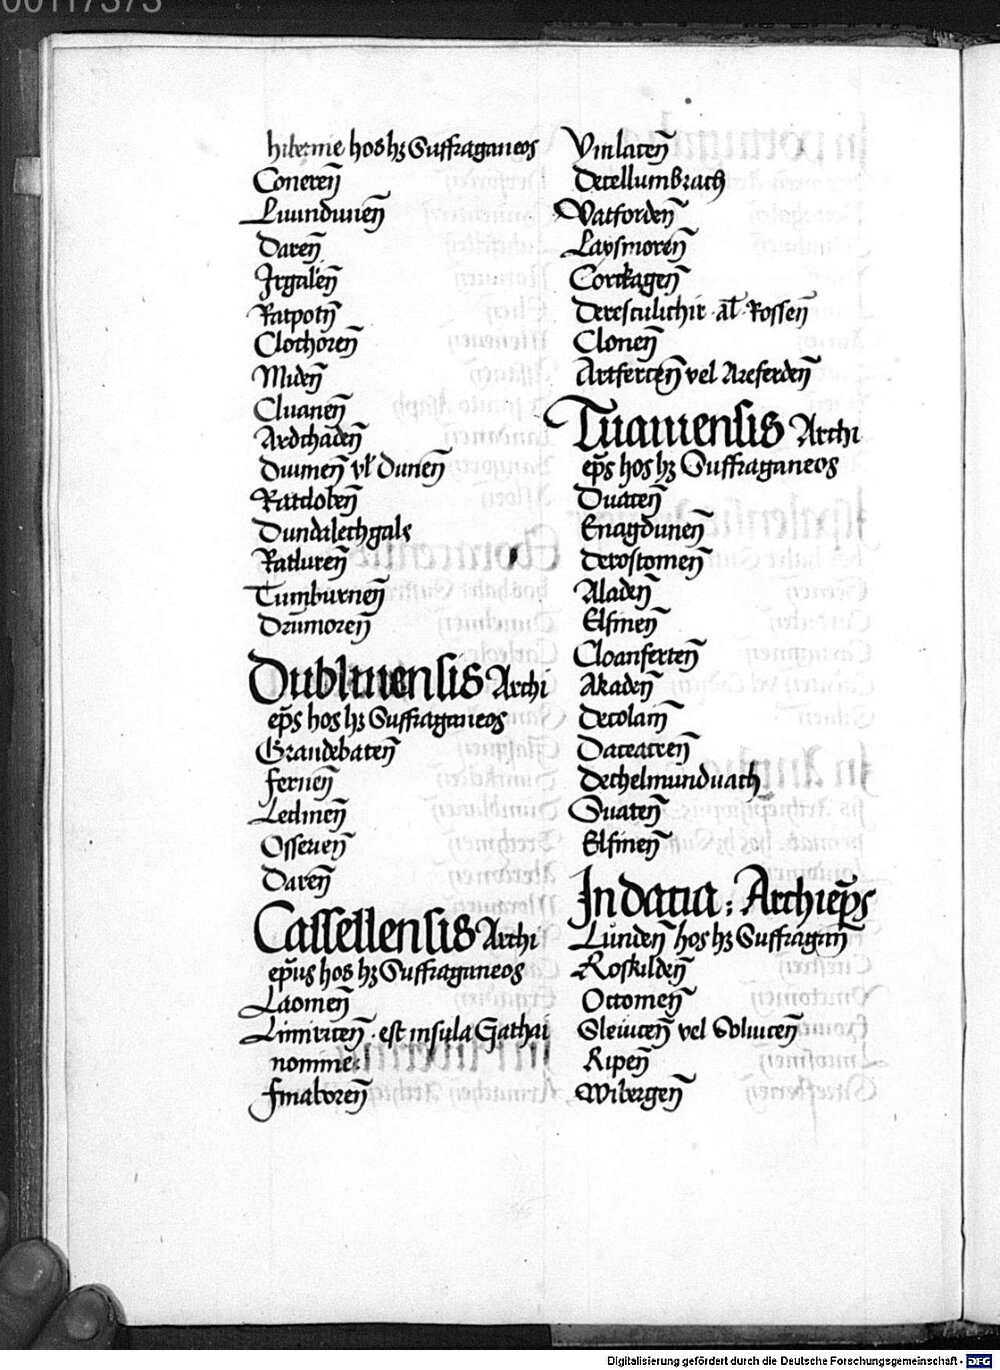 hibernie hos hꝫ Suffraganeos
Coneren̄
Luundunen̄
Daren̄
Irgalen̄
Ratpotn̄
Clochoren̄
Miden̄
Cluanen̄
Ardchaden̄
Duumen̄ vł Dunen̄
Ratdoben̄
Dundalethgals
Ratluren̄
Tumburnen̄
Drumoren̄
Dubliuensis Archi
ep̄s hos hꝫ Suffraganeos
Grandebaten̄
fernen̄
Leclinen̄
Osseuen̄
Daren̄
Cassellensis Archi
ep̄us hos hꝫ Suffraganeos
Laomen̄
Limiricen̄ · est insula Gathai
nomine:
finaboren̄
Vinlacen̄
Decellumbrach
Vatforden̄
Laysmoren̄
Corckagen̄
Deresculichir · al̄ · Rossen̄
Clonen̄
Artfercen̄ vel Areferden̄
Tuauiensis Archi
ep̄s hos hꝫ Suffraganeos
Duacen̄
Enagdunen̄
Derostomen̄
Aladen̄
Elfinen̄
Cloanferten̄
Akaden̄
Decolain̄
Daceatren̄
Dechelmunduach
Duaten̄
Elfinen̄
In dacia : Archiep̄s
Lunden̄ hos hꝫ Suffragan̄
Roskilden̄
Ottomen̄
Sleiucen̄ vel Soluicen̄
Ripen̄
Wibergen̄
Digitalisierung gefördert durch die Deutsche Forschungsgemeinschaft - DFG